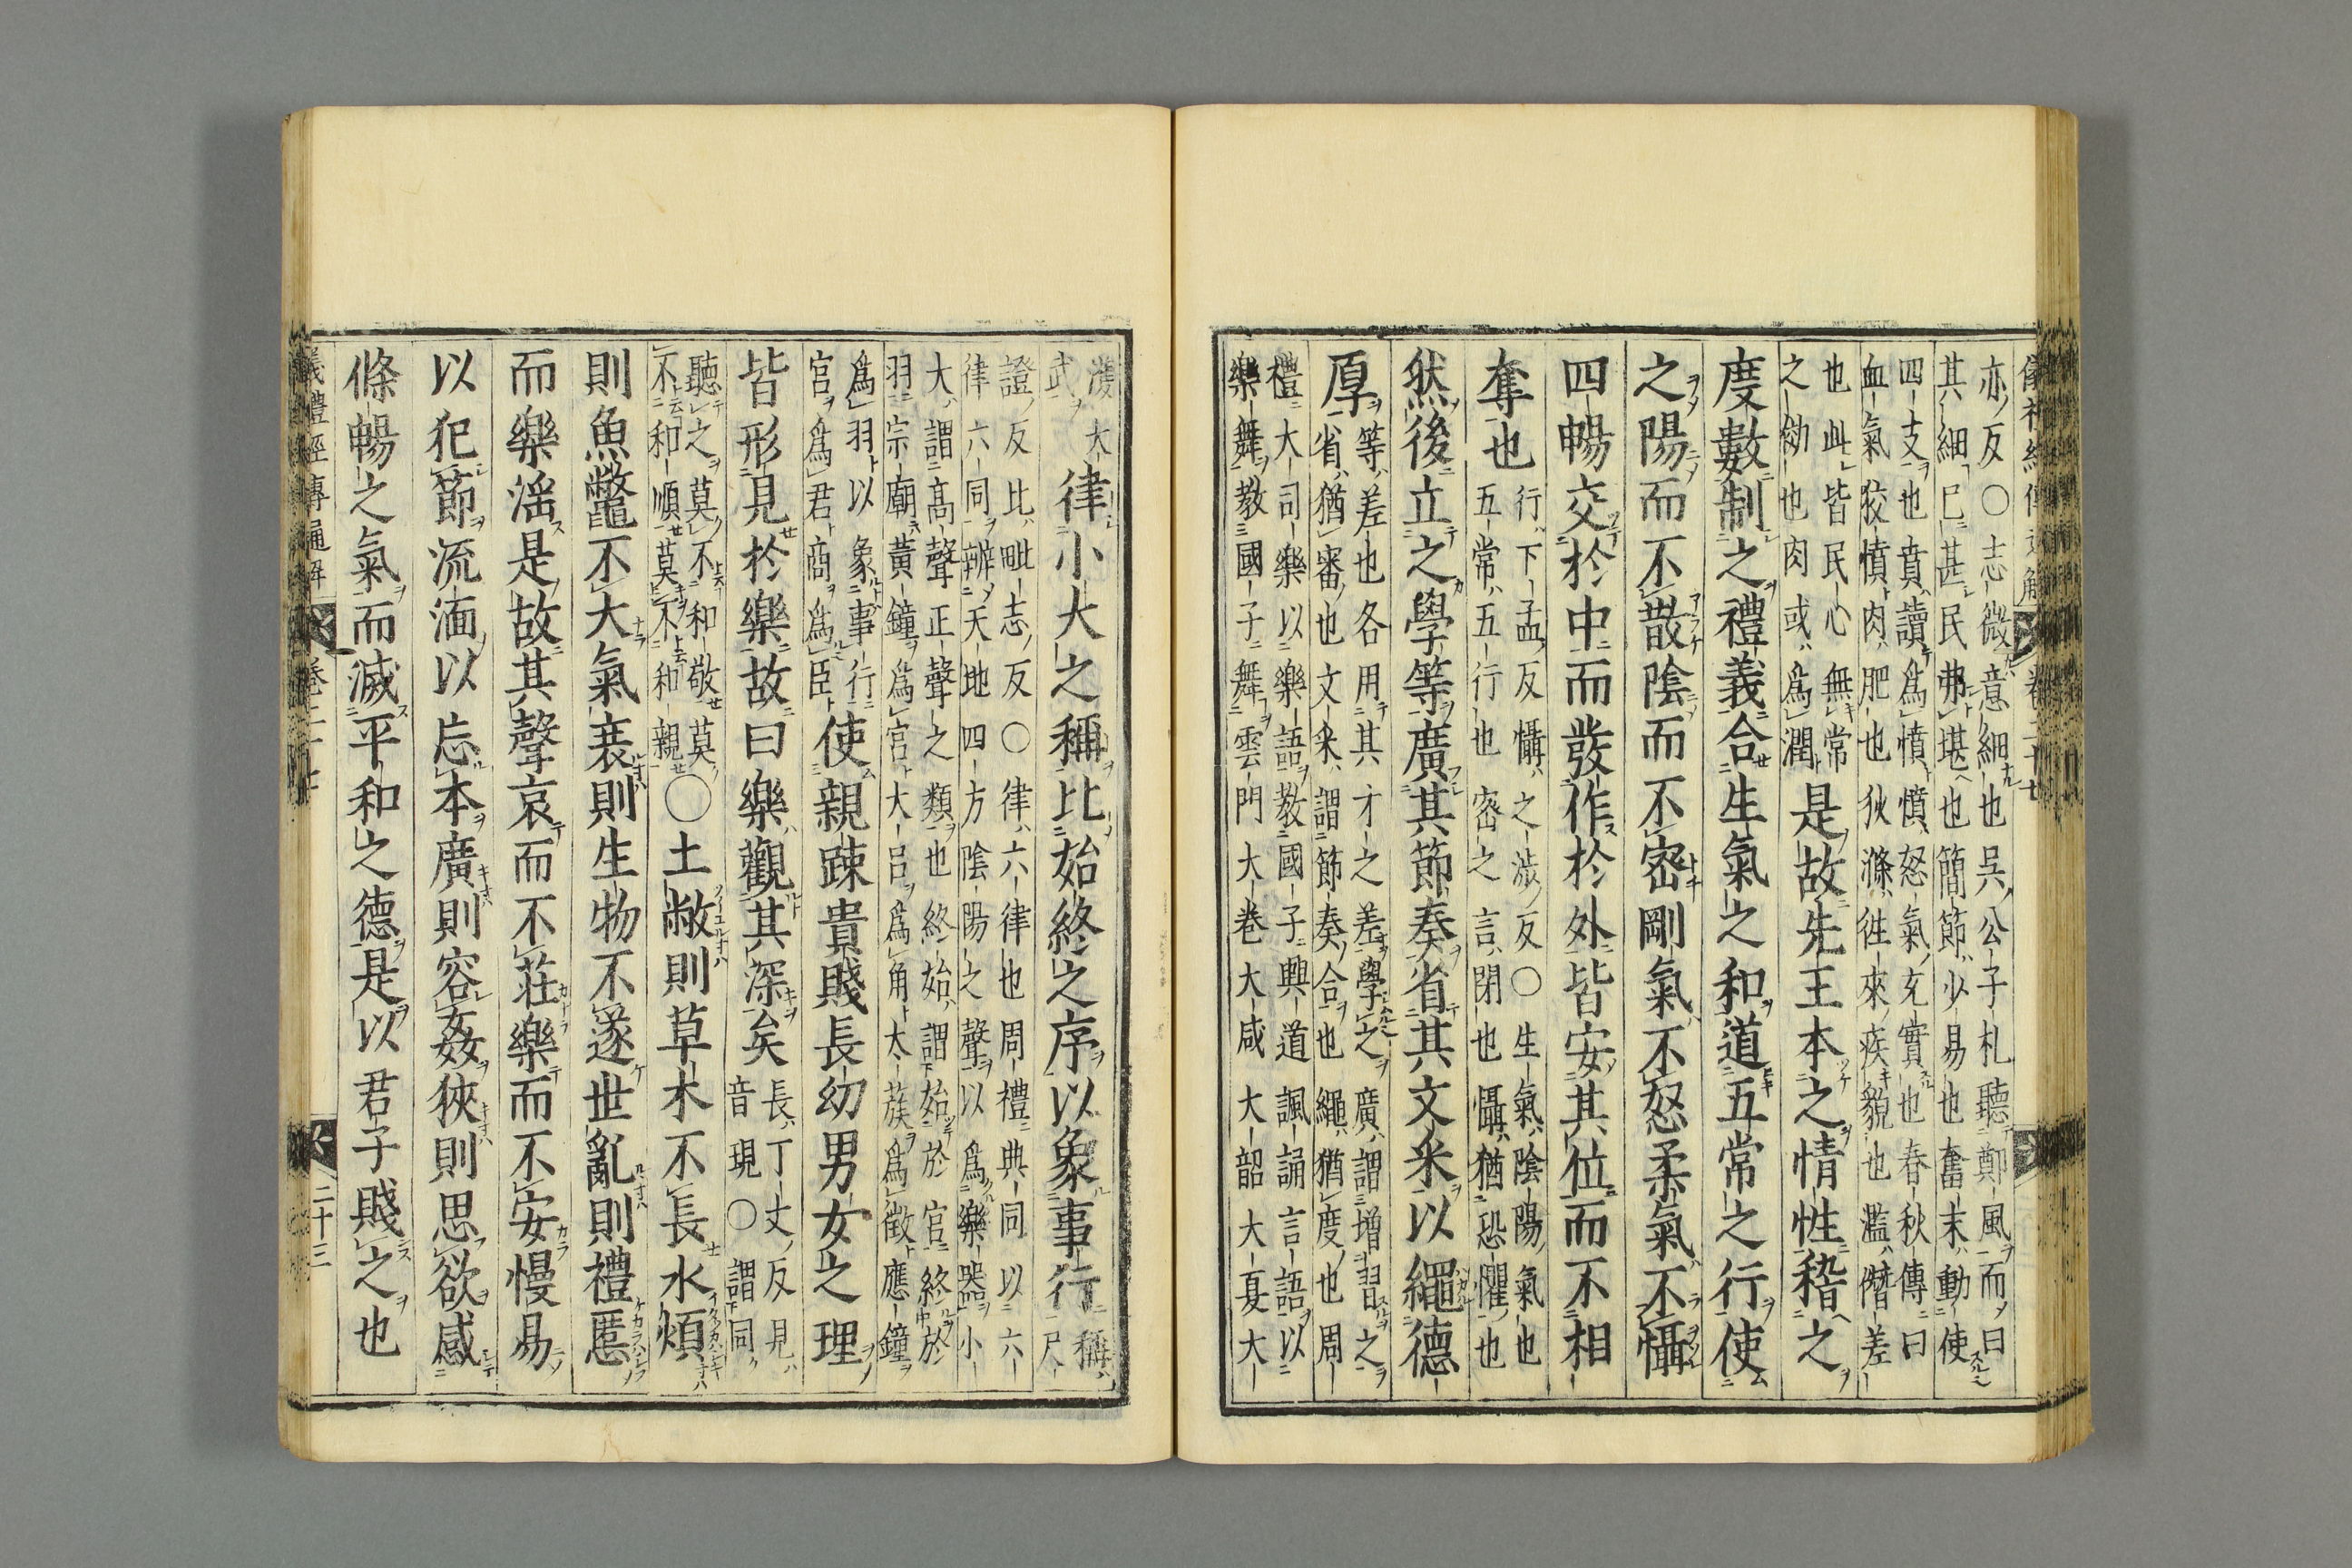 亦反○志微意細也吳公子札聽鄭風而曰
其細已甚民弗堪也簡節少易也奮末動使
四支也賁讀爲憤憤怒氣充實也春秋傳曰
血氣狡憤肉肥也狄滌徃來疾貌也濫僭差
也此皆民心無常
之効也肉或爲潤是故先王本之情性稽之
度數制之禮義合生氣之和道五常之行使
之陽而不散陰而不密剛氣不怒柔氣不懾
四暢交於中而發作於外皆安其位而不相
奪也行下孟反懾之涉反○生氣陰陽氣也
五常五行也密之言閉也懾猶恐懼也
然後立之學等廣其節奏省其文采以繩德
厚等差也各用其才之差學之廣謂增習之
省猶審也文采謂節奏合也繩猶度也周
禮大司樂以樂語教國子興道諷誦言語以
樂舞教國子舞雲門大卷大咸大韶大夏大
濩大
武律小大之稱比始終之序以象事行稱尺
證反比毗志反○律六律也周禮典同以六
律六同辨天地四方陰陽之聲以爲樂器小
大謂高聲正聲之類也終始謂始於宮終於
羽宗廟黃鐘爲宮大呂爲角大蔟爲徵應鐘
爲羽以象事行
宮爲君商爲臣使親疎貴賤長幼男女之理
皆形見於樂故曰樂觀其深矣長丁丈反見
音現○謂同
聽之莫不和敬莫
不和順莫不和親○土敝則草木不長水煩
則魚鼈不大氣衰則生物不遂世亂則禮慝
而樂淫是故其聲哀而不莊樂而不安慢易
以犯節流湎以忘本廣則容姦狹則思欲感
條暢之氣而滅平和之德是以君子賤之也
儀禮經傳通解 卷二十七 二十三